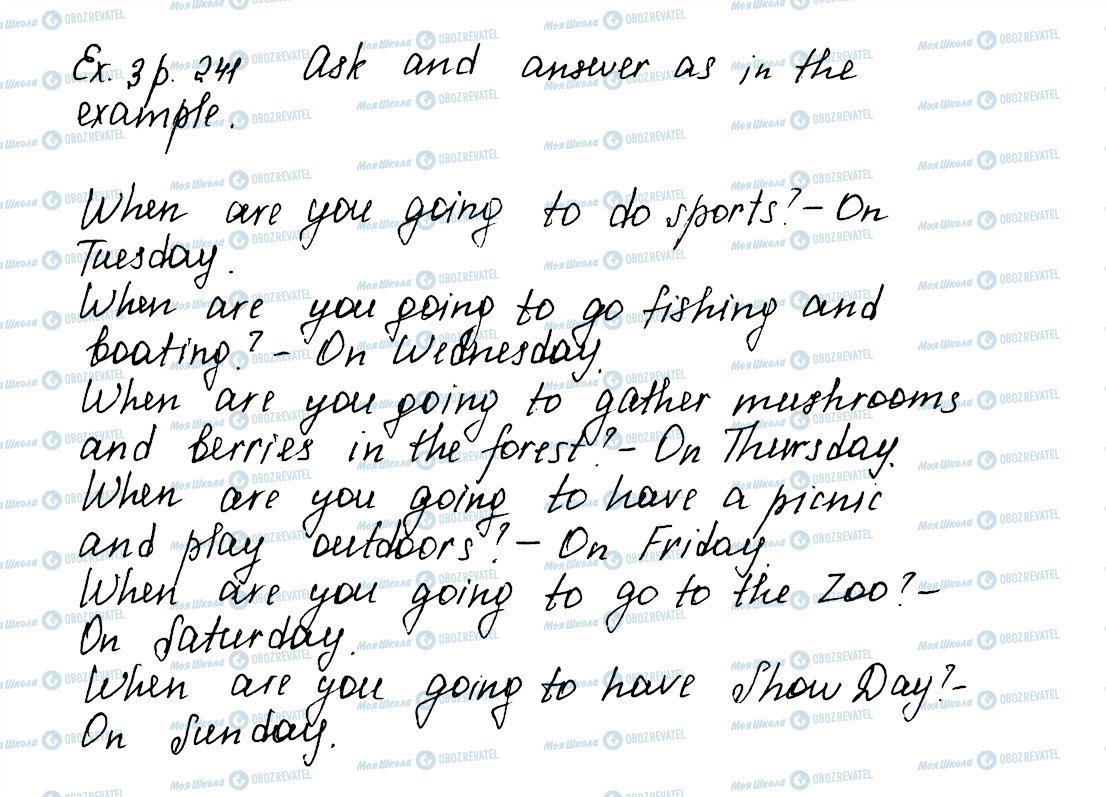 Ex. 3 p. 241 Ask and answer as in the
example.
When are you going to do sports? - On
Tuesday.
When are you going to go fishing and
boating? - On Wednesday.
When are you going to gather mushrooms
and berries in the forest? - On Thursday.
When are you going to have a picnic
and play outdoors? - On Friday.
When are you going to go to the Zoo? -
On Saturday.
When are you going to have Show Day? -
On Sunday.